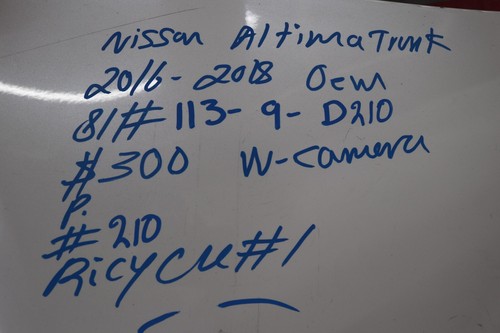 Nissan Altima Trunk
2016-2018 Oem
81# 113-9-D210
$300 W-Camera
P.
#210
Ricycle #1